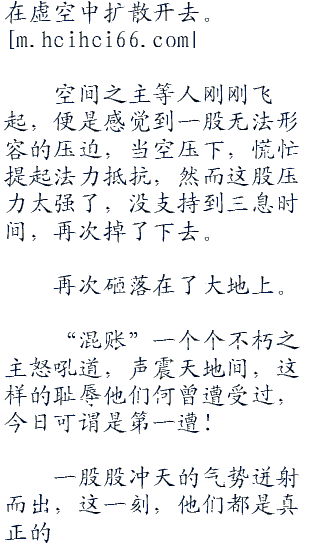 在虚空中扩散开去。
[m.hcihci66.com|
空间之主等人刚刚飞
起，便是感觉到一股无法形
容的压迫，当空压下，慌忙
提起法力抵抗，然而这股压
力太强了，没支持到三息时
间，再次掉了下去。
再次砸落在了大地上。
“混账”一个个不朽之
主怒吼道，声震天地间，这
样的耻辱他们何曾遭受过，
今日可谓是第一遭！
一股股冲天的气势迸射
而出，这一刻，他们都是真
正的